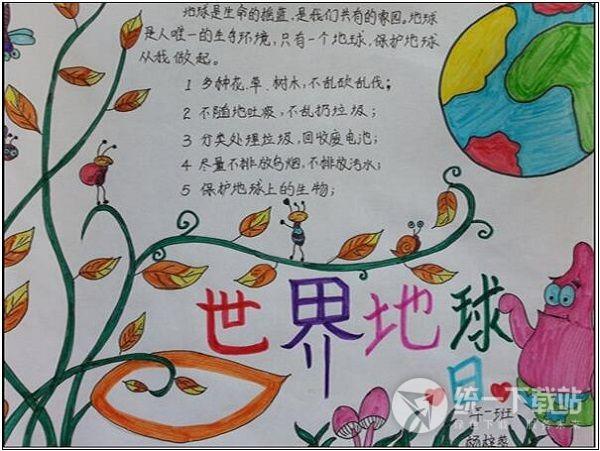 地球是生命的摇篮,是我们共有的家园。地球
是人唯一的生存环境,只有一个地球,保护地球
从我做起。
1 多种花、草、树木,不乱砍乱伐;
2 不随地吐痰,不乱扔垃圾;
3 分类处理垃圾,回收废电池;
4 尽量不排放乌烟,不排放污水;
5 保护地球上的生物;
世界地球
日
一班
统一下载站